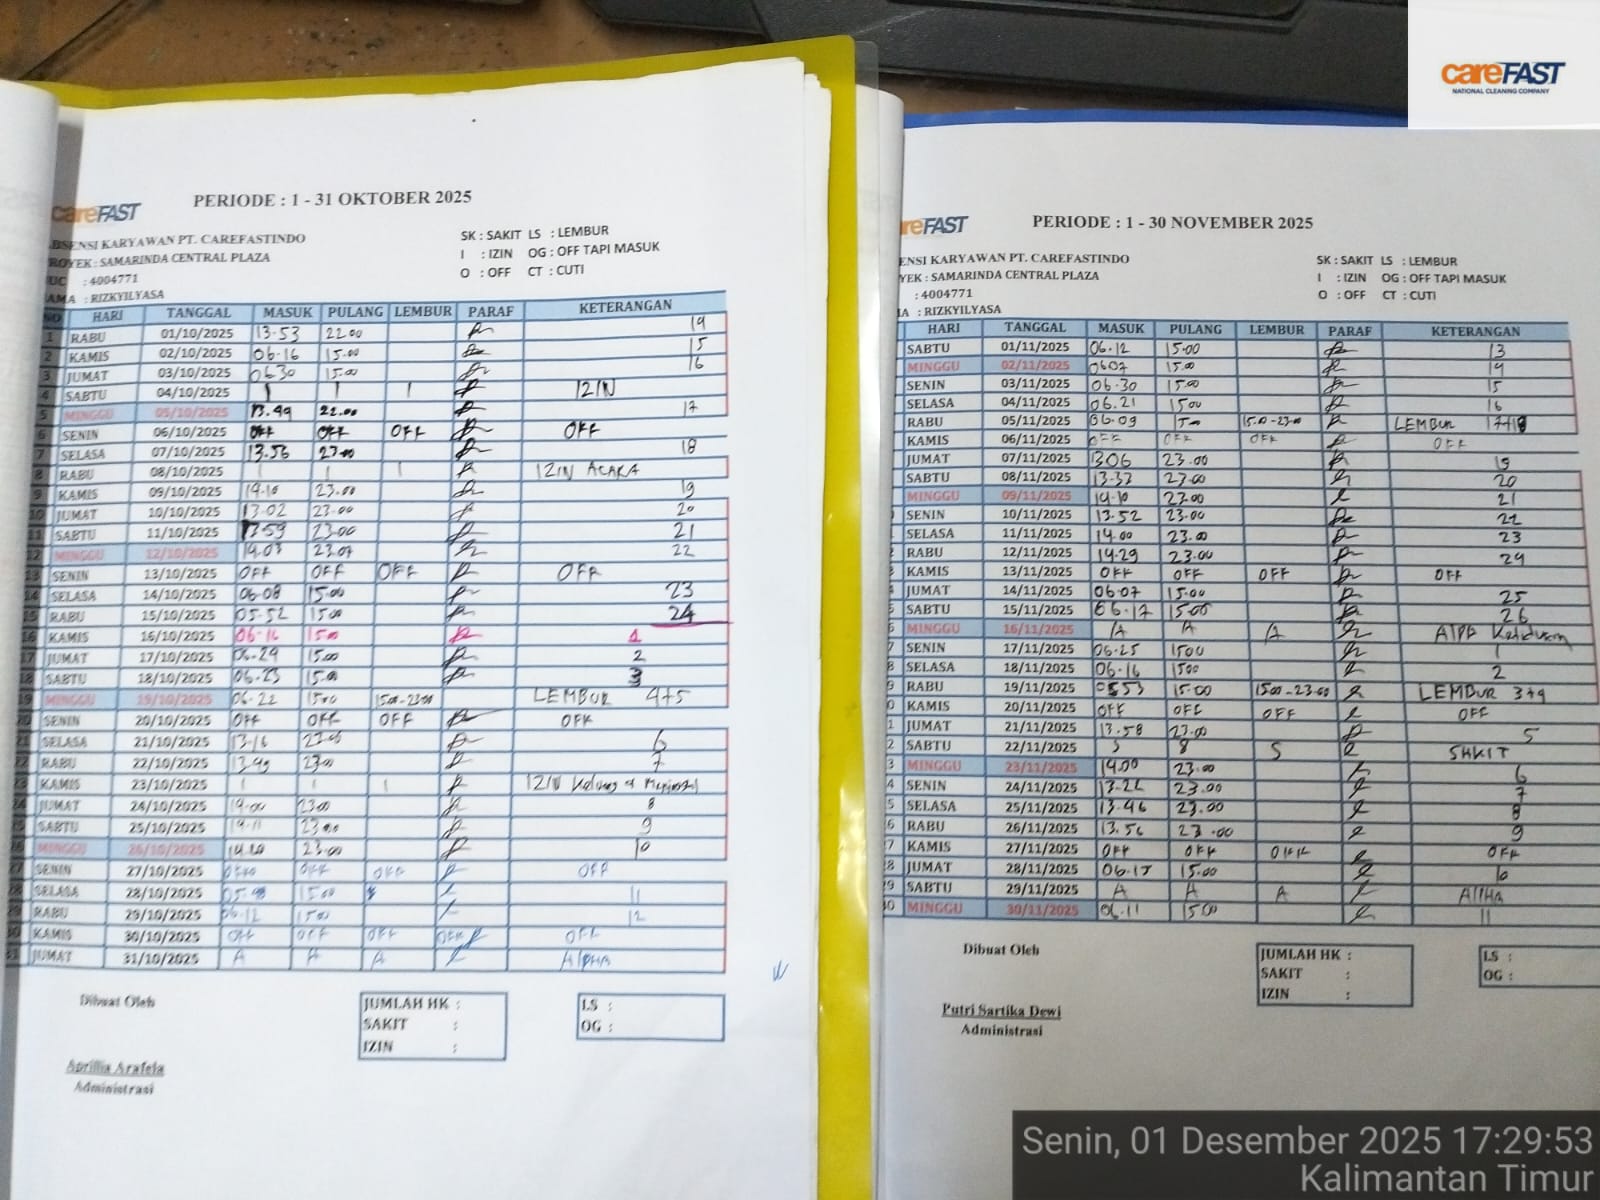 careFAST
NATIONAL CLEANING COMPANY
careFAST
PERIODE : 1 - 31 OKTOBER 2025
ABSENSI KARYAWAN PT. CAREFASTINDO
SK : SAKIT LS : LEMBUR
PROYEK : SAMARINDA CENTRAL PLAZA
I : IZIN OG : OFF TAPI MASUK
: 4004771
O : OFF CT : CUTI
NAMA : RIZKYILYASA
NO HARI TANGGAL MASUK PULANG LEMBUR PARAF KETERANGAN
1 RABU 01/10/2025 13-53 22.00 19
2 KAMIS 02/10/2025 06-16 15.00 15
3 JUMAT 03/10/2025 06.30 15.00 16
4 SABTU 04/10/2025 I I I IZIN
5 MINGGU 05/10/2025 13.49 22.00 17
6 SENIN 06/10/2025 OFF OFF OFF OFF
7 SELASA 07/10/2025 13.56 23.00 18
8 RABU 08/10/2025 I I I IZIN ACARA
9 KAMIS 09/10/2025 14-10 23.00 19
10 JUMAT 10/10/2025 13-02 23.00 20
11 SABTU 11/10/2025 13-59 23.00 21
12 MINGGU 12/10/2025 14.03 23.07 22
13 SENIN 13/10/2025 OFF OFF OFF OFF
14 SELASA 14/10/2025 06-08 15.00 23
15 RABU 15/10/2025 05-52 15.00 24
16 KAMIS 16/10/2025 06-16 15.00 1
17 JUMAT 17/10/2025 06-29 15.00 2
18 SABTU 18/10/2025 06-23 15.00 3
19 MINGGU 19/10/2025 06-22 15.00 15.00-23.00 LEMBUR 4+5
20 SENIN 20/10/2025 OFF OFF OFF OFF
21 SELASA 21/10/2025 13-16 23.00 6
22 RABU 22/10/2025 13-49 23.00 7
23 KAMIS 23/10/2025 I I I IZIN
24 JUMAT 24/10/2025 14-00 23.00 8
25 SABTU 25/10/2025 14-11 23.00 9
26 MINGGU 26/10/2025 14.20 23.00 10
27 SENIN 27/10/2025 OFF OFF OFF
28 SELASA 28/10/2025 15.00 11
29 RABU 29/10/2025 06-12 15.00 12
30 KAMIS 30/10/2025 OFF OFF OFF OFF OFF
31 JUMAT 31/10/2025 A A A AlPHA
Dibuat Oleh
JUMLAH HK :
SAKIT :
IZIN :
LS :
OG :
Aprillia Arafela
Administrasi
reFAST
PERIODE : 1 - 30 NOVEMBER 2025
ENSI KARYAWAN PT. CAREFASTINDO
SK : SAKIT LS : LEMBUR
YEK : SAMARINDA CENTRAL PLAZA
I : IZIN OG : OFF TAPI MASUK
: 4004771
O : OFF CT : CUTI
A : RIZKYILYASA
HARI TANGGAL MASUK PULANG LEMBUR PARAF KETERANGAN
SABTU 01/11/2025 06.12 15.00 13
MINGGU 02/11/2025 0607 15.00 14
SENIN 03/11/2025 06-30 15.00 15
SELASA 04/11/2025 06.21 1500 16
RABU 05/11/2025 06-09 15.00-23.00 LEMBUR 17+18
KAMIS 06/11/2025 OFF OFF OFF OFF
JUMAT 07/11/2025 1306 23.00 19
SABTU 08/11/2025 13-33 23.00 20
MINGGU 09/11/2025 14-10 23.00 21
SENIN 10/11/2025 13.52 23.00 22
SELASA 11/11/2025 14.00 23.00 23
RABU 12/11/2025 14-29 23.00 24
KAMIS 13/11/2025 OFF OFF OFF OFF
JUMAT 14/11/2025 06-07 15.00 25
SABTU 15/11/2025 06-17 15.00 26
MINGGU 16/11/2025 A A A
SENIN 17/11/2025 06-25 1500 1
SELASA 18/11/2025 06-16 1500 2
RABU 19/11/2025 0553 15.00 1500-23.00 LEMBUR 3+4
KAMIS 20/11/2025 OFF OFF OFF OFF
JUMAT 21/11/2025 13.58 23.00 5
SABTU 22/11/2025 S S S SAKIT
MINGGU 23/11/2025 14.00 23.00 6
SENIN 24/11/2025 13-26 23.00 7
SELASA 25/11/2025 13-46 23.00 8
RABU 26/11/2025 13.56 23.00 9
KAMIS 27/11/2025 OFF OFF OFF OFF
JUMAT 28/11/2025 06-15 15.00 10
SABTU 29/11/2025 A A A AlPHA
MINGGU 30/11/2025 06.11 15.00 11
Dibuat Oleh
JUMLAH HK :
SAKIT :
IZIN :
LS :
OG :
Putri Sartika Dewi
Administrasi
Senin, 01 Desember 2025 17:29:53
Kalimantan Timur